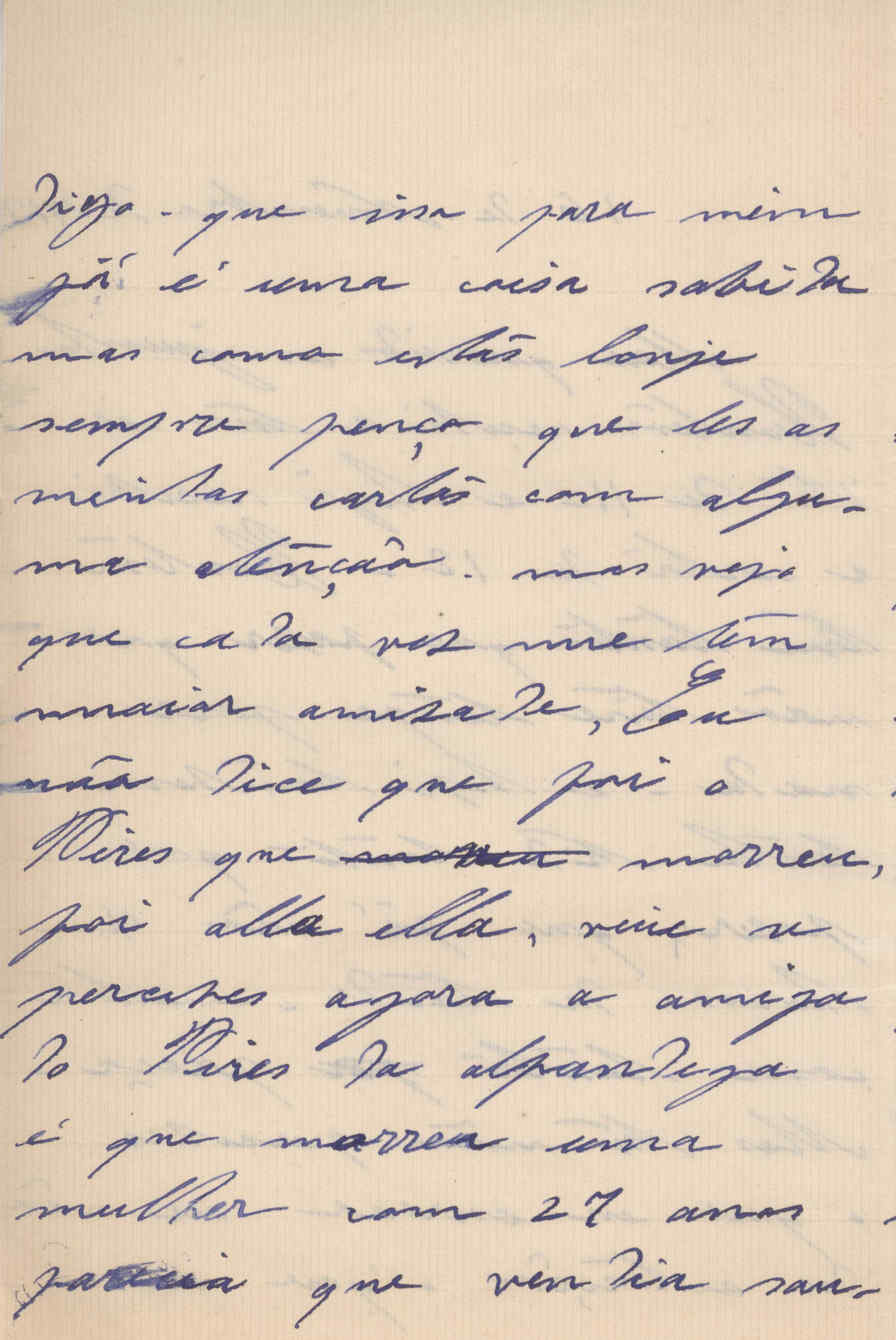 Digo - que issa para mim
já é uma coisa sabida
mas como estás lonje
sempre penço que les as
minhas cartas com algu-
ma atenção. mas vejo
que cada vez me têm
maior amisade, Eu
não dice que foi o
Pires que morreu,
foi alla ella, veie se
percebes agora a amiga
do Pires da alfandega
é que morreu uma
mulher com 27 anos
parecia que vendia sau-